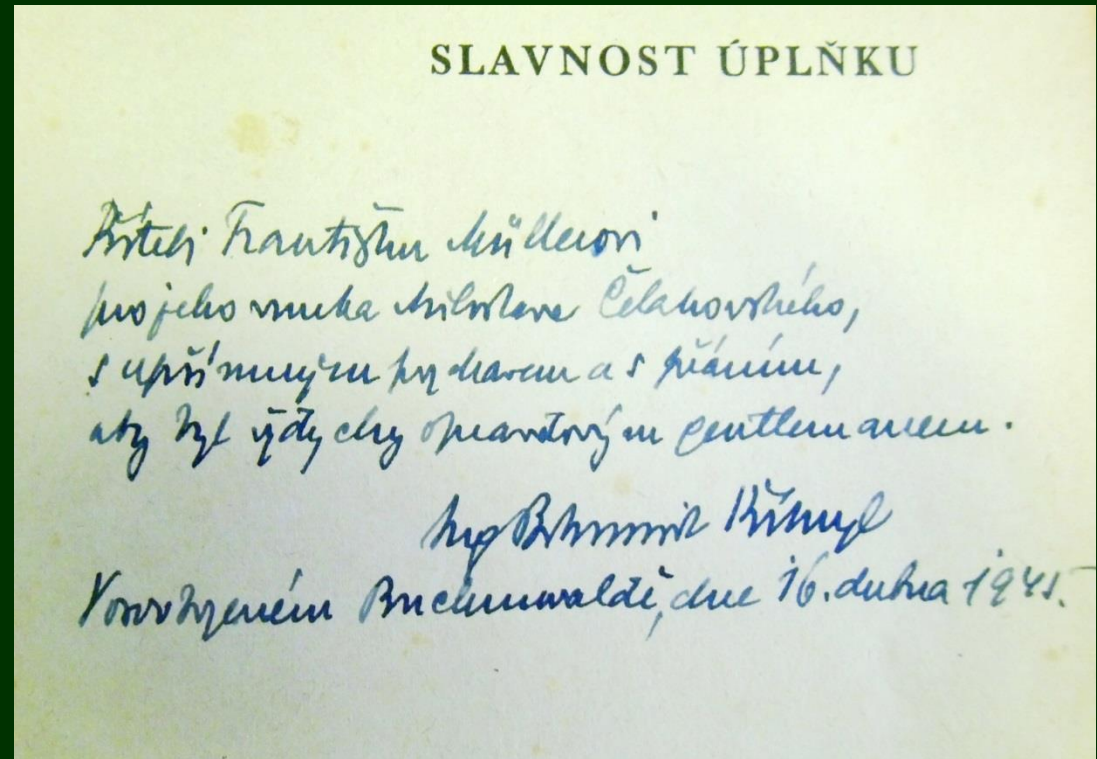 SLAVNOST ÚPLŇKU
Příteli Františku Müllerovi
pro jeho vnuka Miloslava Čelakovského,
s upřímným pozdravem a s přáním,
aby byl vždycky opravdovým gentlemanem.
Ing Bohumil
V osvobozeném Buchenwaldě, dne 16. dubna 1945.